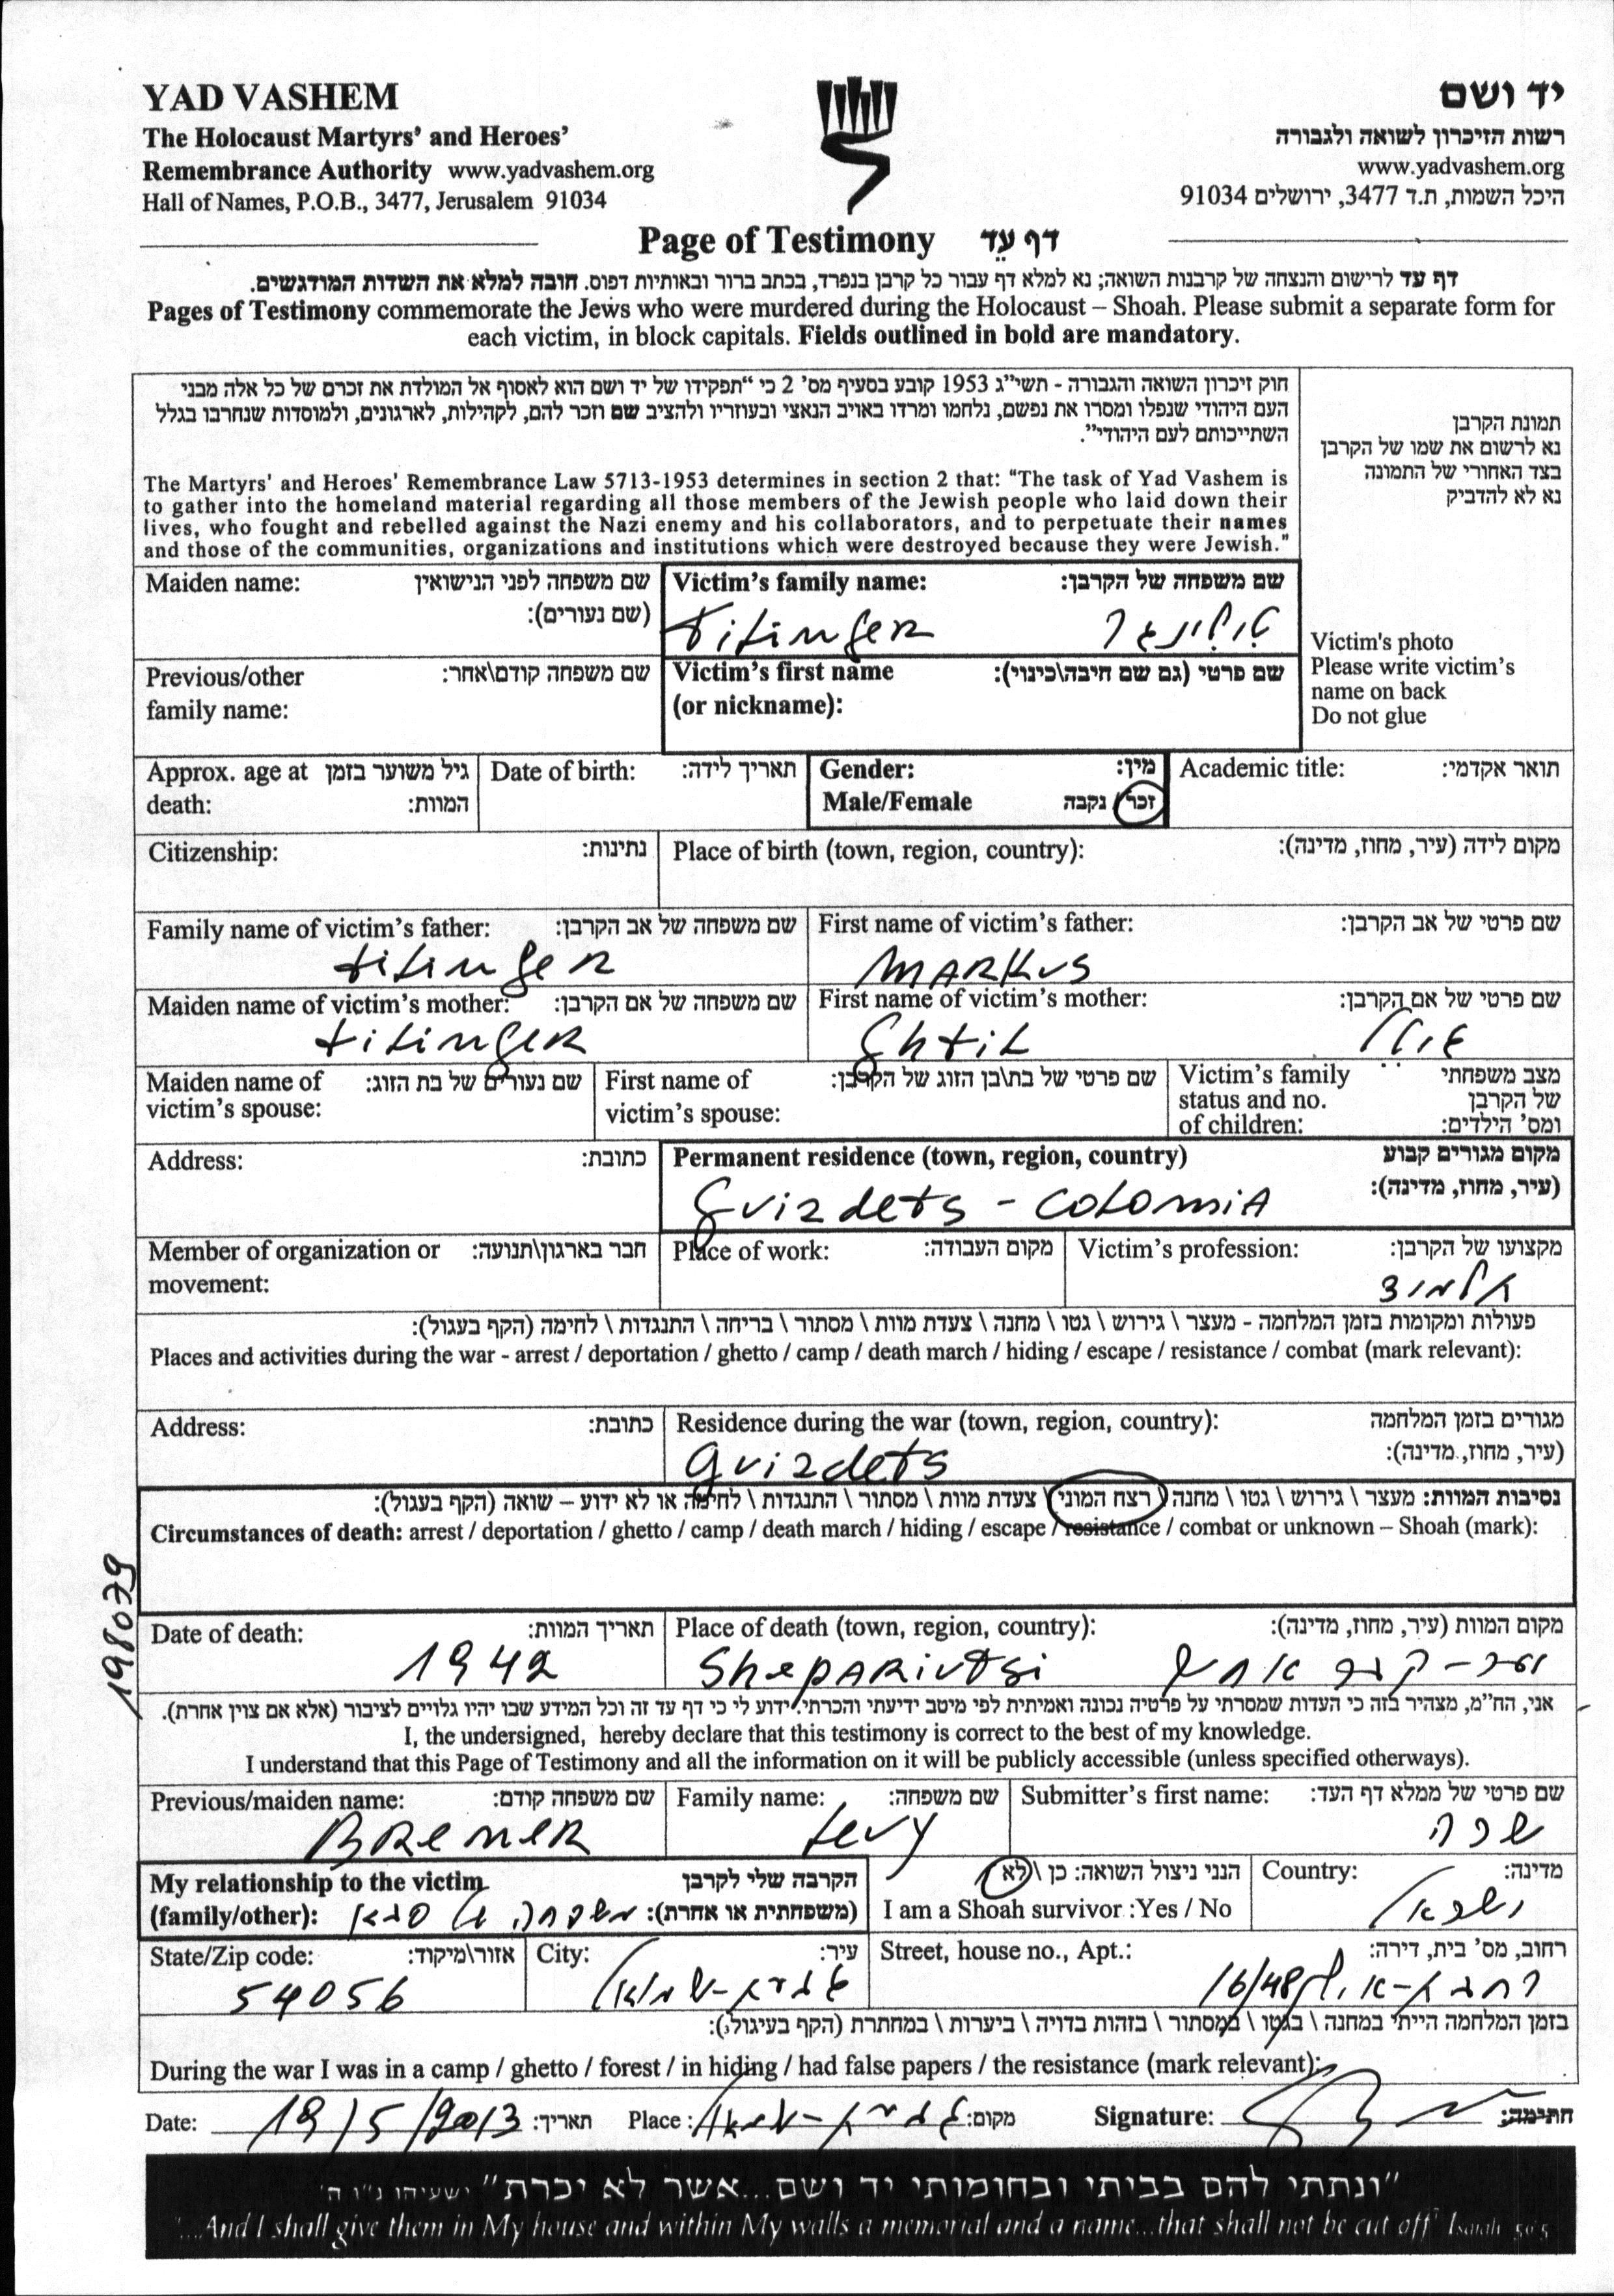 YAD VASHEM
The Holocaust Martyrs' and Heroes'
Remembrance Authority www.yadvashem.org
Hall of Names, P.O.B., 3477, Jerusalem 91034
יד ושם
רשות הזיכרון לשואה ולגבורה
www.yadvashem.org
היכל השמות, ת.ד 3477, ירושלים 91034
Page of Testimony דף עֵד
דף עד לרישום והנצחה של קרבנות השואה; נא למלא דף עבור כל קרבן בנפרד, בכתב ברור ובאותיות דפוס. חובה למלא את השדות המודגשים.
Pages of Testimony commemorate the Jews who were murdered during the Holocaust – Shoah. Please submit a separate form for
each victim, in block capitals. Fields outlined in bold are mandatory.
חוק זיכרון השואה והגבורה - תשי"ג 1953 קובע בסעיף מס' 2 כי "תפקידו של יד ושם הוא לאסוף אל המולדת את זכרם של כל אלה מבני
העם היהודי שנפלו ומסרו את נפשם, נלחמו ומרדו באויב הנאצי ובעוזריו ולהציב שם וזכר להם, לקהילות, לארגונים, ולמוסדות שנחרבו בגלל
השתייכותם לעם היהודי".
The Martyrs' and Heroes' Remembrance Law 5713-1953 determines in section 2 that: "The task of Yad Vashem is
to gather into the homeland material regarding all those members of the Jewish people who laid down their
lives, who fought and rebelled against the Nazi enemy and his collaborators, and to perpetuate their names
and those of the communities, organizations and institutions which were destroyed because they were Jewish."
תמונת הקרבן
נא לרשום את שמו של הקרבן
בצד האחורי של התמונה
נא לא להדביק
Victim's photo
Please write victim's
name on back
Do not glue
Maiden name: שם משפחה לפני הנישואין
(שם נעורים):
Victim's family name: שם משפחה של הקרבן:
titinger טיטינגר
Previous/other שם משפחה קודם\אחר:
family name:
Victim's first name שם פרטי (גם שם חיבה\כינוי):
(or nickname):
Approx. age at גיל משוער בזמן
death: המוות:
Date of birth: תאריך לידה:
Gender: מין:
Male/Female זכר / נקבה
Academic title: תואר אקדמי:
Citizenship: נתינות:
Place of birth (town, region, country): מקום לידה (עיר, מחוז, מדינה):
Family name of victim's father: שם משפחה של אב הקרבן:
titinger
First name of victim's father: שם פרטי של אב הקרבן:
MARKUS
Maiden name of victim's mother: שם משפחה של אם הקרבן:
titinger
First name of victim's mother: שם פרטי של אם הקרבן:
Maiden name of שם נעורים של בת הזוג:
victim's spouse:
First name of שם פרטי של בת\בן הזוג של הקרבן:
victim's spouse:
Victim's family מצב משפחתי
status and no. של הקרבן
of children: ומס' הילדים:
Address: כתובת:
Permanent residence (town, region, country) מקום מגורים קבוע
(עיר, מחוז, מדינה):
gvizdets - COLOMIA
Member of organization or חבר בארגון\תנועה:
movement:
Place of work: מקום העבודה:
Victim's profession: מקצועו של הקרבן:
פעולות ומקומות בזמן המלחמה - מעצר \ גירוש \ גטו \ מחנה \ צעדת מוות \ מסתור \ בריחה \ התנגדות \ לחימה (הקף בעגול):
Places and activities during the war - arrest / deportation / ghetto / camp / death march / hiding / escape / resistance / combat (mark relevant):
Address: כתובת:
Residence during the war (town, region, country): מגורים בזמן המלחמה
(עיר, מחוז, מדינה):
gvizdets
נסיבות המוות: מעצר \ גירוש \ גטו \ מחנה \ רצח המוני \ צעדת מוות \ מסתור \ התנגדות \ לחימה או לא ידוע – שואה (הקף בעגול):
Circumstances of death: arrest / deportation / ghetto / camp / death march / hiding / escape / resistance / combat or unknown – Shoah (mark):
198079
Date of death: תאריך המוות:
1942
Place of death (town, region, country): מקום המוות (עיר, מחוז, מדינה):
Sheparivtsi יער - קבר אחים
אני, הח"מ, מצהיר בזה כי העדות שמסרתי על פרטיה נכונה ואמיתית לפי מיטב ידיעתי והכרתי. ידוע לי כי דף עד זה וכל המידע שבו יהיו גלויים לציבור (אלא אם צוין אחרת).
I, the undersigned, hereby declare that this testimony is correct to the best of my knowledge.
I understand that this Page of Testimony and all the information on it will be publicly accessible (unless specified otherways).
Previous/maiden name: שם משפחה קודם:
BREMER
Family name: שם משפחה:
Levy
Submitter's first name: שם פרטי של ממלא דף העד:
שפרה
My relationship to the victim הקרבה שלי לקרבן
(family/other): (משפחתית או אחרת): משפחה של סבא
הנני ניצול השואה: כן \ לא
I am a Shoah survivor :Yes / No
Country: מדינה:
ישראל
State/Zip code: אזור\מיקוד:
54056
City: עיר:
גבעת-שמואל
Street, house no., Apt.: רחוב, מס' בית, דירה:
רמבם-אילן 16/48
בזמן המלחמה הייתי במחנה \ בגטו \ במסתור \ בזהות בדויה \ ביערות \ במחתרת (הקף בעיגול):
During the war I was in a camp / ghetto / forest / in hiding / had false papers / the resistance (mark relevant):
Date: 19/5/2013 תאריך: Place: גבעת-שמואל מקום: Signature: חתימה:
"ונתתי להם בביתי ובחומותי יד ושם...אשר לא יכרת" ישעיהו נ"ו ה'
"...And I shall give them in My house and within My walls a memorial and a name...that shall not be cut off" Isaiah 56:5